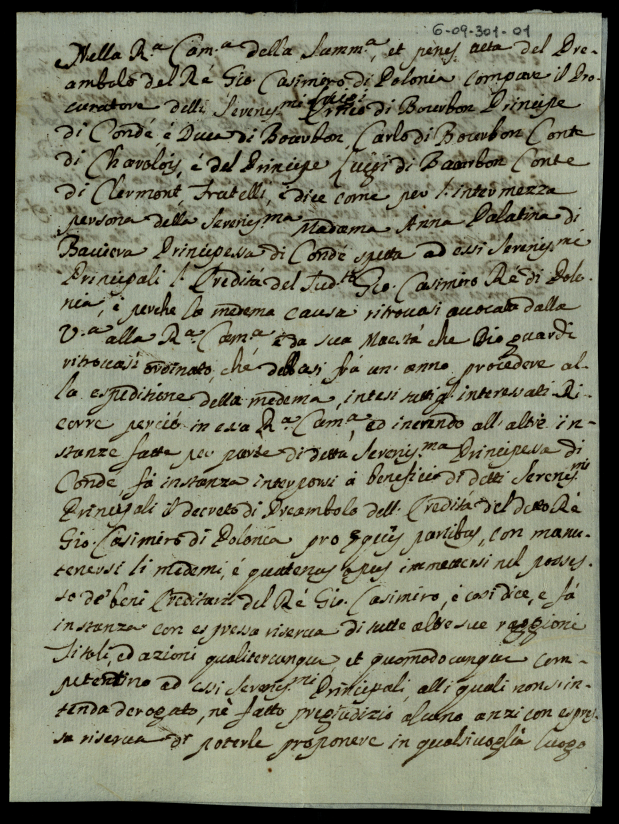 6-09-301-01
Nella R.ª Cam.ª della Summ.ª, et penes acta del Pre-
ambolo del Rè Gio. Casimiro di Polonia compare il Pro-
curatore delli Sereniss.mi di Bourbon Principe
di Condé è Duca di Bourbon, Carlo di Bourbon Conte
di Charolois, è del Principe Luiggi di Bourbon Conte
di Clermont, Fratelli, è dice come per l'intermezza
persona della Sereniss.ma Madama Anna Palatina di
Baviera Principessa di Condé spetta ad essi Sereniss.mi
Principali l'Eredità del Sud.tto Gio. Casimiro Rè di Polo-
nia, è perche la medema causa ritrovasi avocata dalla
V.ª alla R.ª Cam.ª è da sua Maestà che Dio guardi
ritrovasi ordinato, che debbasi frà un'anno procedere al-
la espeditione della medema, intesi tutti gl'interessati Ri-
corre perciò in essa R.ª Cam.ª, ed inerendo all'altre in-
stanze fatte per parte di detta Sereniss.ma Principessa di
Condé, fà instanza interporsi à beneficio di detti Sereniss.mi
Principali il decreto di Preambolo dell'Eredità del detto Rè
Gio. Casimiro di Polonia pro eguis partibus, con manu-
tenersi li medemi, è quatenus opus immettersi nel posses-
so de' beni Ereditarii del Rè Gio. Casimiro, è così dice, e fà
instanza con espressa riserva di tutte altre sue raggioni
Titoli, ed azioni qualitercunque, et quomodocunque com-
petentino ad essi Sereniss.mi Principali, alli quali non s'in-
tenda derogato, nè fatto pregiudizio alcuno anzi con espres-
sa riserva di poterle proponere in qualsivoglia luogo